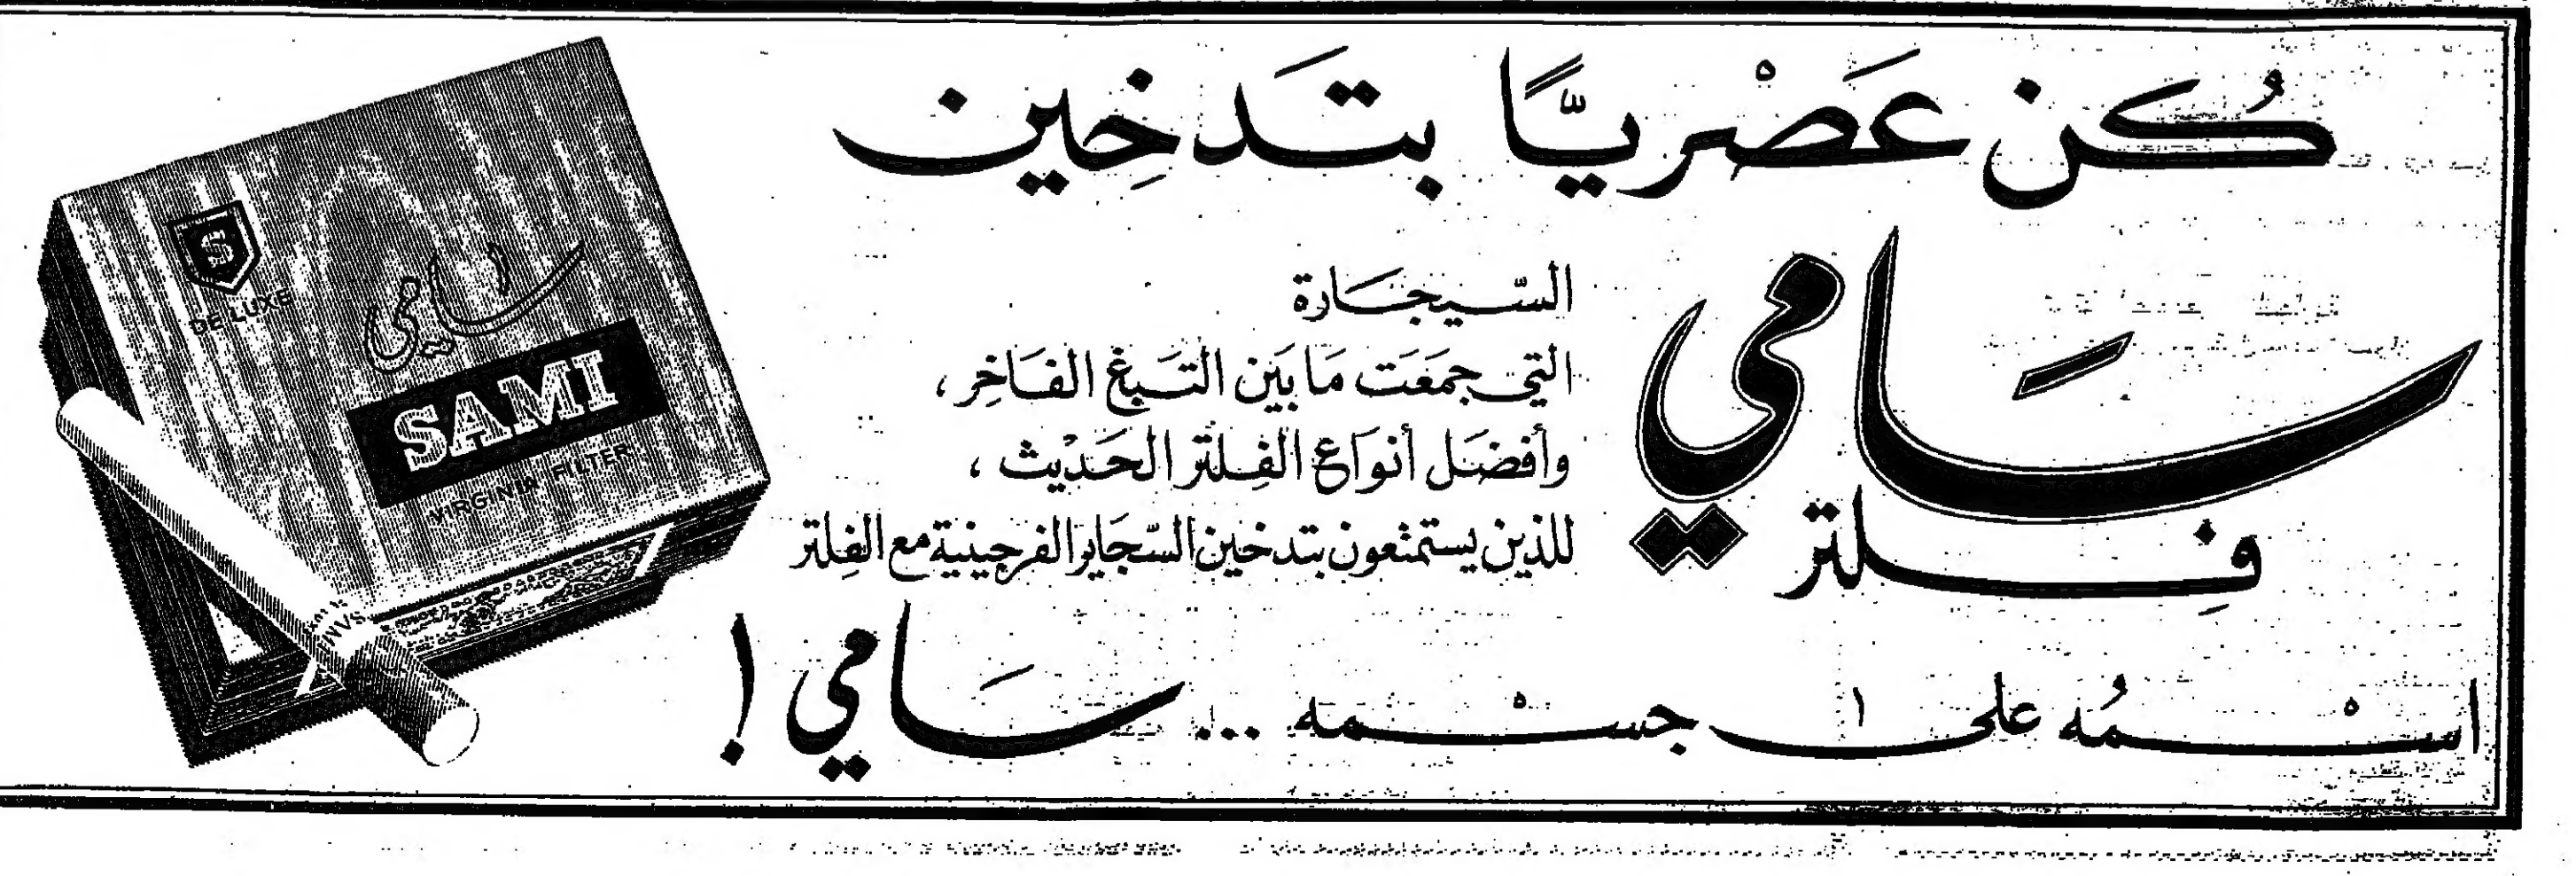 كُن عَصْريًّا بتَدخِين
سَامي
فِلتر
السّيجَارة
التي جمَعَت مَا بَين التَبغ الفَاخِر،
وأفضَل أنوَاع الفِلتر الحَدْيث،
للذين يستمتعون بتدخين السّجَاير الفرجينية مع الفِلتر
اسْمُه على جسْمه ... سَامي!
S
DE LUXE
سامي
SAMI
VIRGINIA FILTER
SAMI